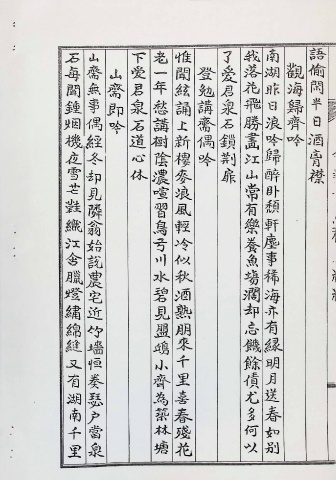 語偷閒半日酒弯襟
觀海歸齊吟
南湖昨日浪吟歸醉卧頹軒塵事稀海亦有緑明月送春如別
我落花飛勝畫江山常有樂養魚塲濶却忘饑餘債尤多何以
了愛君泉石鎖荆扉
登勉講齋偶吟
惟聞絃誦上新樓麥浪風輕冷似秋酒熟朋來千里喜春殘花
老一年愁講樹陰濃喧習鳥芎川水碧見盟鴎小齊為築林塘
下愛君泉石道心休
山齋即吟
山齋無事偶經冬却見隣翁始說農宅近竹墻恒奏瑟戶當泉
石每聞鍾烟機夜雪芒鞋織江舍臘燈繡綿縫又有湖南千里